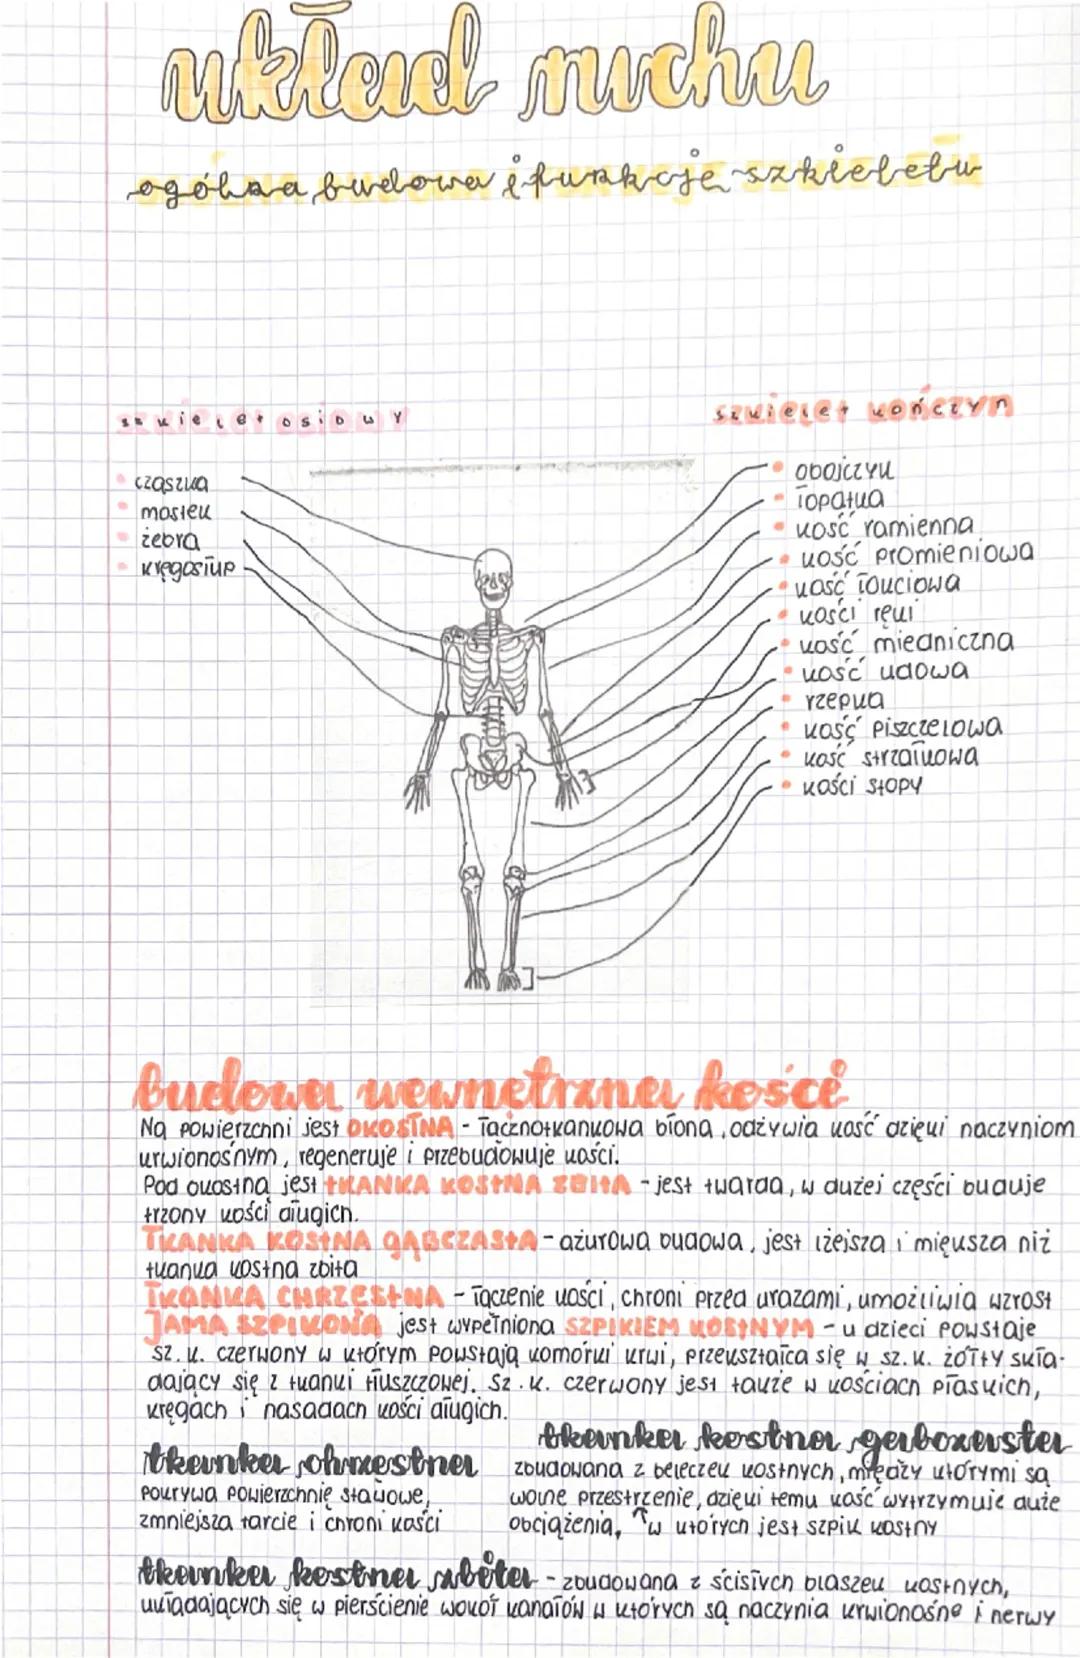 układ ruchu
ogólna budowa i funkcje szkieletu
szkielet osiowy
szkielet kończyn
czaszka
mostek
żebra
kręgosłup
obojczyk
łopatka
kość ramienna
kość promieniowa
kość łokciowa
kości ręki
kość miedniczna
kość udowa
rzepka
kość piszczelowa
kość strzałkowa
kości stopy
budowa wewnętrzna kości
Na powierzchni jest OKOSTNA - łącznotkankowa błona, odżywia kość dzięki naczyniom
krwionośnym, regeneruje i przebudowuje kości.
Pod okostną jest TKANKA KOSTNA ZBITA - jest twarda, w dużej części buduje
trzony kości długich.
TKANKA KOSTNA GĄBCZASTA - ażurowa budowa, jest lżejsza i miększa niż
tkanka kostna zbita
TKANKA CHRZĘSTNA - łączenie kości, chroni przed urazami, umożliwia wzrost
JAMA SZPIKOWA jest wypełniona SZPIKIEM KOSTNYM - u dzieci powstaje
sz. k. czerwony w którym powstają komórki krwi, przekształca się w sz. k. żółty skła-
dający się z tkanki tłuszczowej. Sz. k. czerwony jest także w kościach płaskich,
kręgach i nasadach kości długich.
tkanka chrzęstna
pokrywa powierzchnię stawowe,
zmniejsza tarcie i chroni kości
tkanka kostna gąbczasta
zbudowana z beleczek kostnych, między którymi są
wolne przestrzenie, dzięki temu kość wytrzymuje duże
obciążenia, ↑w których jest szpik kostny
tkanka kostna zbita - zbudowana z ścisłych blaszek kostnych,
układających się w pierścienie wokół kanałów w których są naczynia krwionośne i nerwy